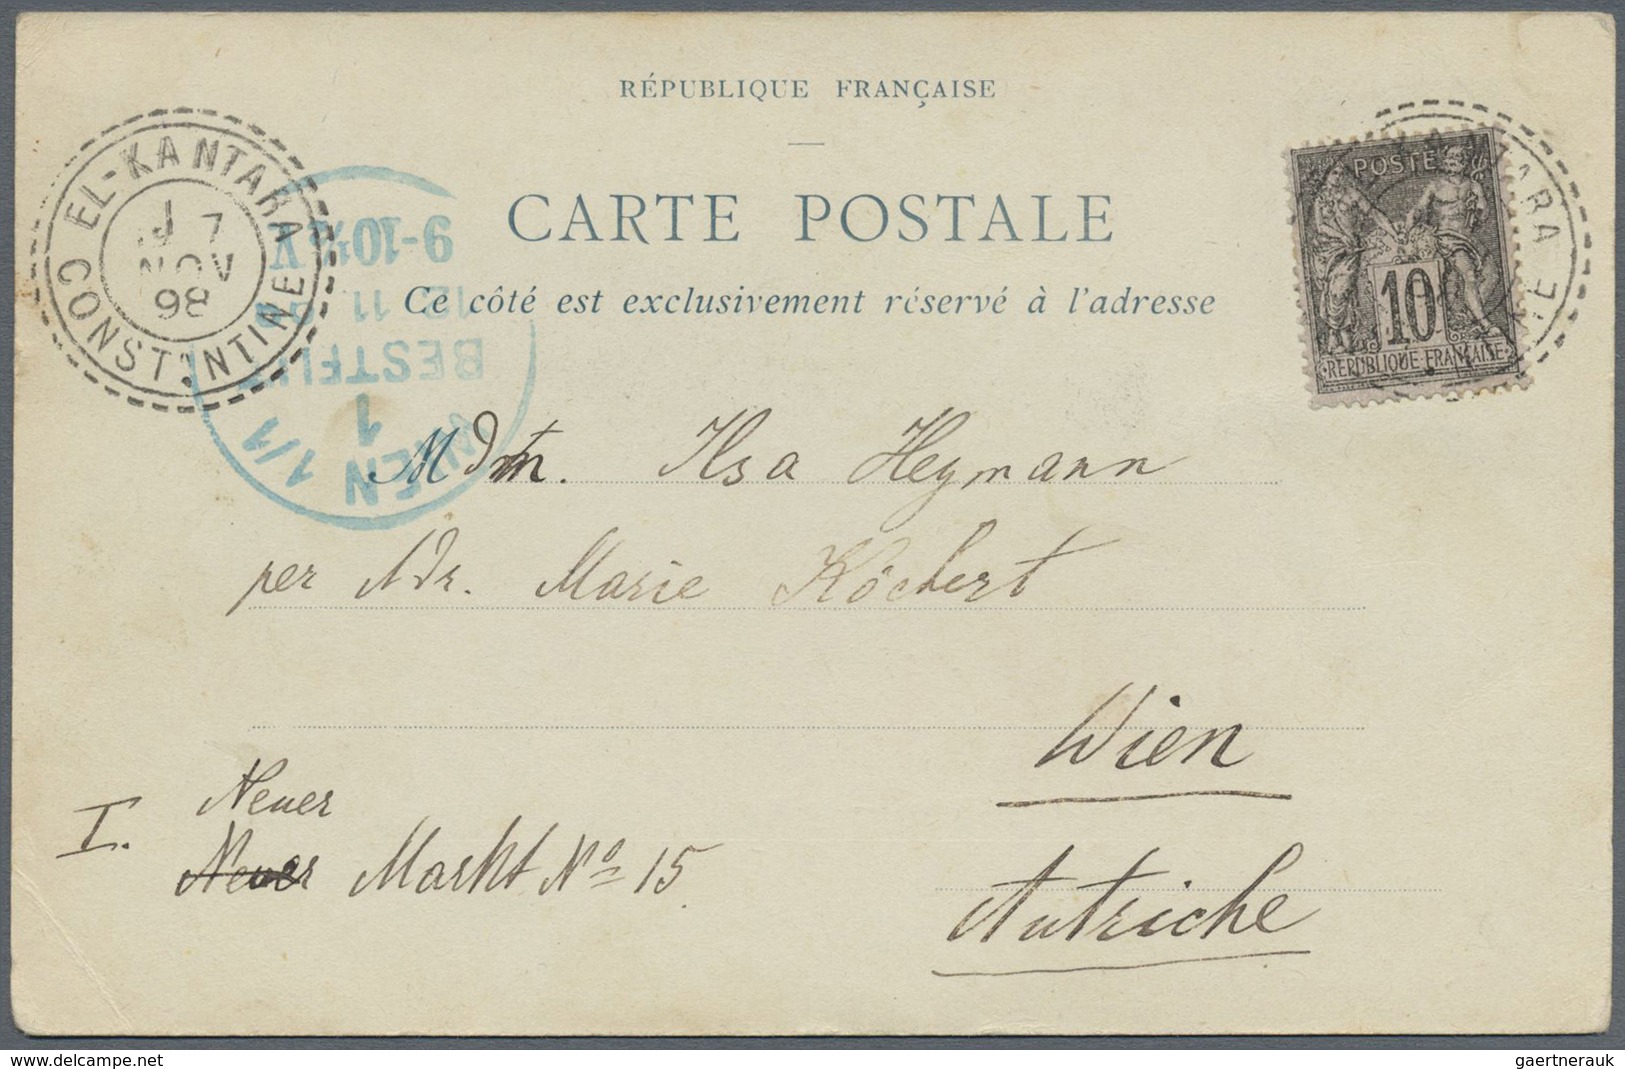 RÉPUBLIQUE FRANÇAISE
CARTE POSTALE
Ce côté est exclusivement réservé à l'adresse
EL-KANTARA
7
NOV
98
CONSTANTINE
9-10½V
11
BESTELLT
1
WIEN 1/1
POSTE
10
RÉPUBLIQUE FRANÇAISE
Ilsa Heymann
per Adr. Marie Köchert
Wien
I. Neuer
Neuer Markt No 15
Autriche
www.delcampe.net
gaertnerauk